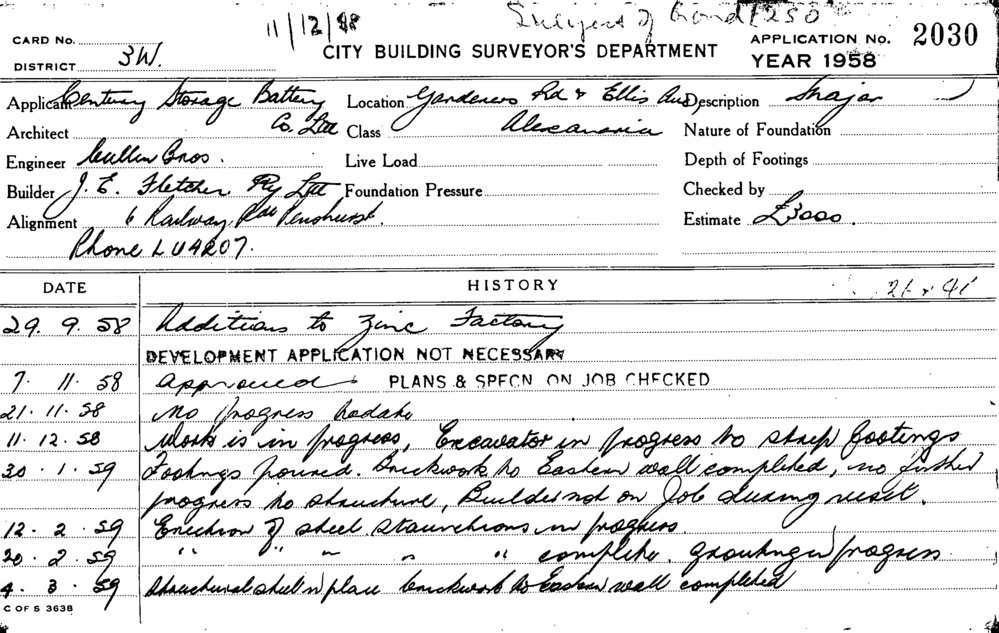 11/12/58 Subject of Bond £250
CARD No.
DISTRICT 3W.
CITY BUILDING SURVEYOR'S DEPARTMENT
APPLICATION No. 2030
YEAR 1958
Applicant Century Storage Battery Co. Ltd Location Gardeners Rd & Ellis Ave Alexandria Description Major
Architect Class Nature of Foundation
Engineer Cullen Bros. Live Load Depth of Footings
Builder J. E. Fletcher Pty Ltd Foundation Pressure Checked by
Alignment 6 Railway Pde Penshurst. Estimate £3000.
Phone LU4207.
DATE HISTORY
26 x 41'
29. 9. 58 Additions to Zinc Factory
DEVELOPMENT APPLICATION NOT NECESSARY
7. 11. 58 Approved PLANS & SPECN ON JOB CHECKED
21. 11. 58 No progress todate
11. 12. 58 Work is in progress, Excavator in progress to strip footings
30. 1. 59 Footings poured. Brickwork to Eastern wall completed, no further
progress to structure, Builder not on Job during visit.
12. 2. 59 Erection of steel staunchions in progress.
20. 2. 59 " " " " " complete. grouting in progress
4. 3. 59 Structural steel in place brickwork to Eastern wall completed
C OF S 3638